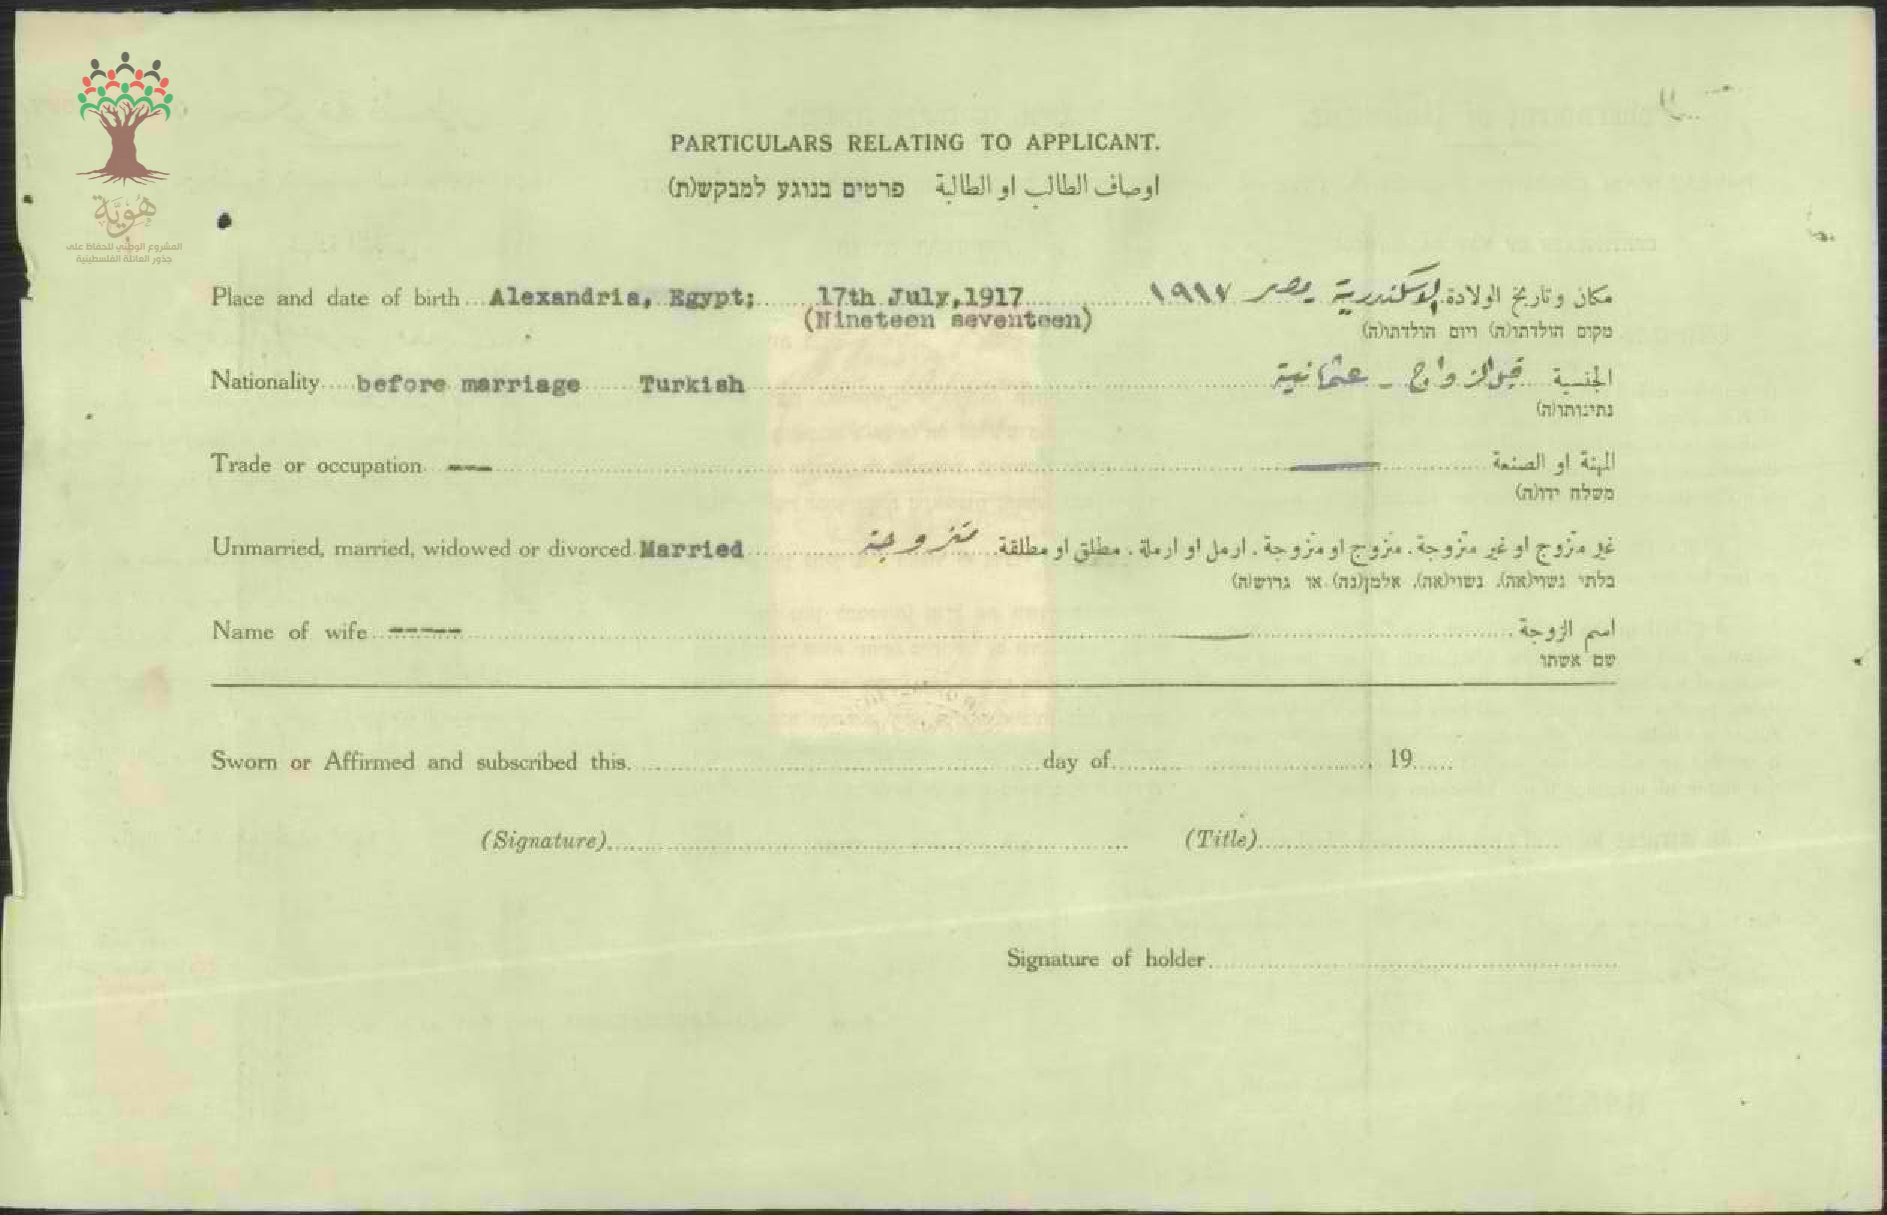 هُوِيَّة
المشروع الوطني للحفاظ على
جذور العائلة الفلسطينية
PARTICULARS RELATING TO APPLICANT.
اوصاف الطالب او الطالبة פרטים בנוגע למבקש(ת)
Place and date of birth Alexandria, Egypt; 17th July,1917 الاسكندرية مصر ١٩١٧ مكان وتاريخ الولادة
(Nineteen seventeen)
מקום הולדתו(ה) ויום הולדתו(ה)
Nationality before marriage Turkish قبل الزواج - عثمانية الجنسية
נתינותו(ה)
Trade or occupation --- المهنة او الصنعة
משלח ידו(ה)
Unmarried, married, widowed or divorced Married متزوجة غير متزوج او غير متزوجة. متزوج او متزوجة. ارمل او ارملة. مطلق او مطلقة
בלתי נשוי(אה), נשוי(אה), אלמן(נה) או גרוש(ה)
Name of wife ----- اسم الزوجة
שם אשתו
Sworn or Affirmed and subscribed this day of 19
(Signature) (Title)
Signature of holder